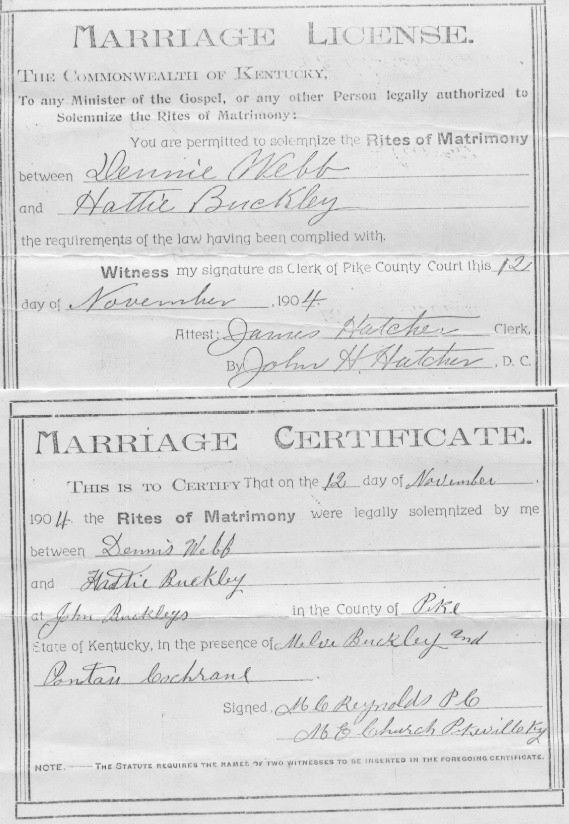 MARRIAGE LICENSE.
THE COMMONWEALTH OF KENTUCKY,
To any Minister of the Gospel, or any other Person legally authorized to
Solemnize the Rites of Matrimony:
You are permitted to solemnize the Rites of Matrimony
between Dennie Webb
and Hattie Buckley
the requirements of the law having been complied with.
Witness my signature as Clerk of Pike County Court this 12
day of November, 1904.
Attest: James Hatcher Clerk,
By John H. Hatcher, D. C.
MARRIAGE CERTIFICATE.
THIS IS TO CERTIFY That on the 12 day of November.
1904 the Rites of Matrimony were legally solemnized by me
between Dennis Webb
and Hattie Buckley
at John Buckleys in the County of Pike
State of Kentucky, in the presence of Buckley and
Cochrane.
Signed, M C Reynolds P C
M E Church Pikeville Ky
NOTE.——THE STATUTE REQUIRES THE NAMES OF TWO WITNESSES TO BE INSERTED IN THE FOREGOING CERTIFICATE.